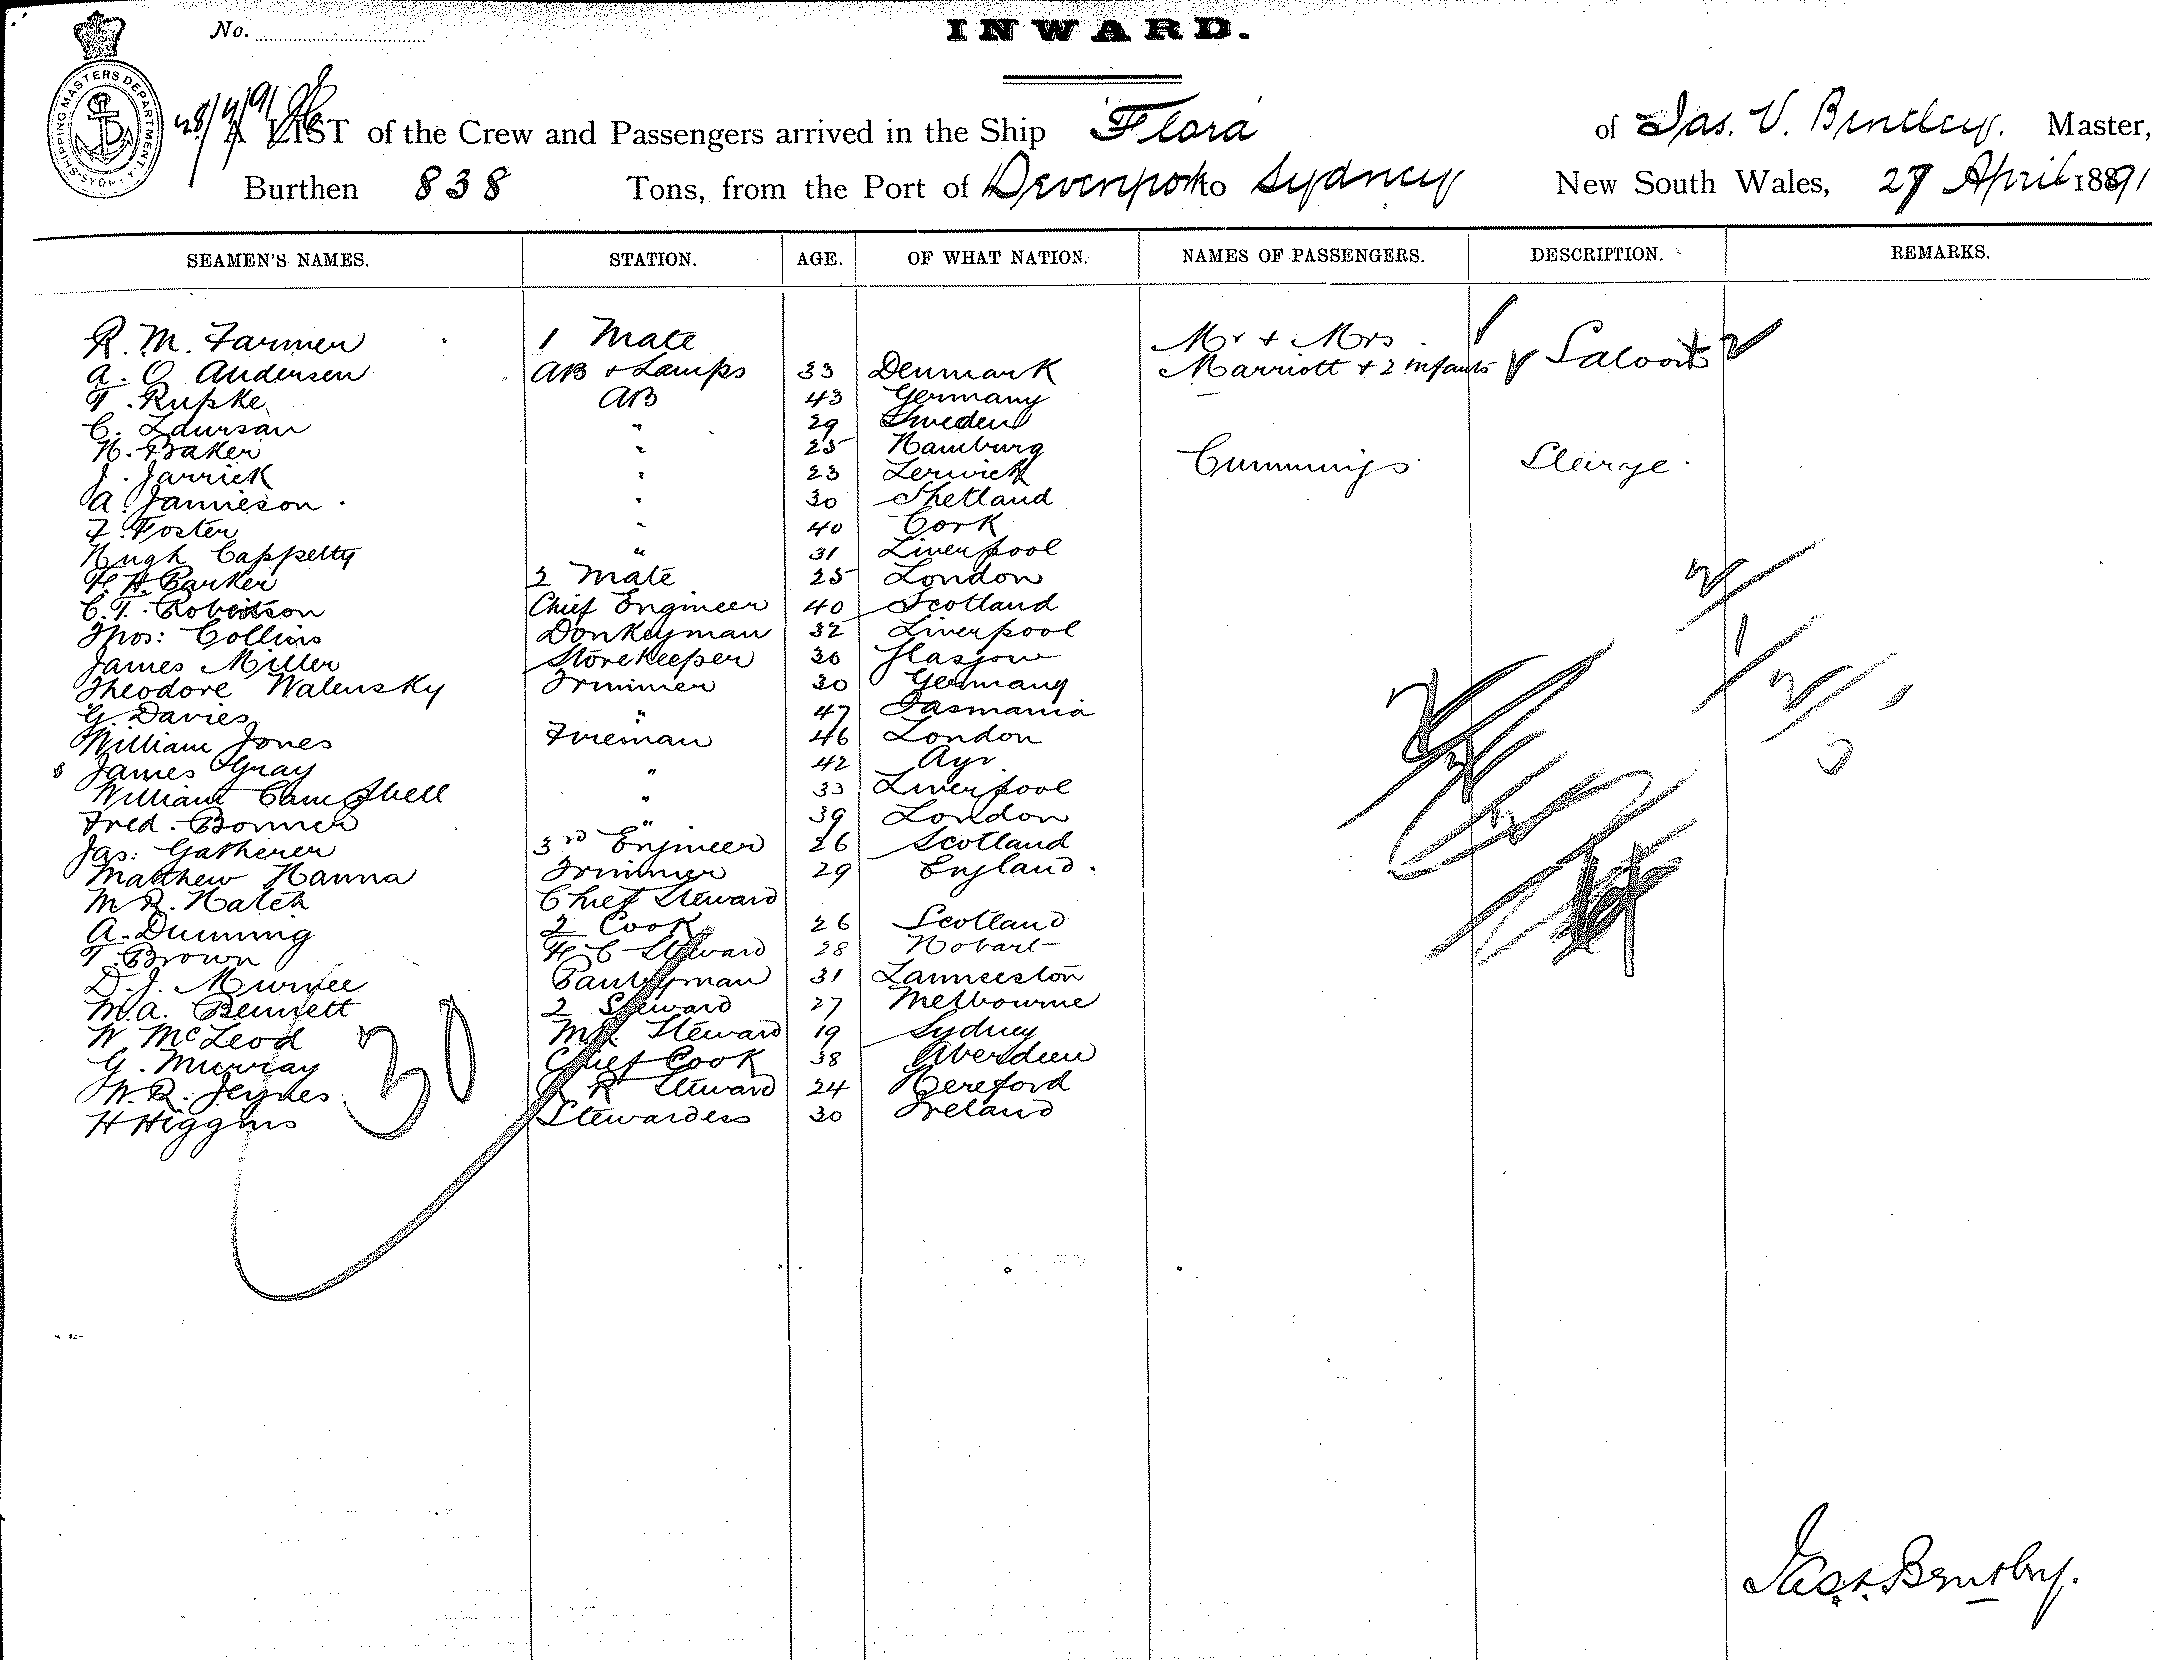 No.
INWARD.
SHIPPING MASTERS DEPARTMENT
28/4/91
A LIST of the Crew and Passengers arrived in the Ship Flora of Jas. V. Bentley. Master,
Burthen 838 Tons, from the Port of Devenport to Sydney New South Wales, 27 April 1891
SEAMEN'S NAMES. STATION. AGE. OF WHAT NATION. NAMES OF PASSENGERS. DESCRIPTION. REMARKS.
R. M. Farmer 1 Mate Mr + Mrs
A. O. Andersen AB + Lamps 33 Denmark Marriott + 2 Infants Saloon
T. Rupke AB 43 Germany
C. Laursan " 29 Sweden
H. Baker " 25 Hamburg
J. Jarrick " 23 Lerwick Cummings
A. Jamieson " 30 Shetland
F. Foster " 40 Cork
Hugh Cappelty " 31 Liverpool
H. A. Parker 2 Mate 25 London
C. T. Robertson Chief Engineer 40 Scotland
Thos: Collins Donkeyman 32 Liverpool
James Miller Storekeeper 30 Glasgow
Theodore Walensky Trimmer 30 Germany
G. Davies " 47 Tasmania
William Jones Fireman 46 London
James Gray " 42 Ayr
William Campbell " 33 Liverpool
Fred. Bonner " 39 London
Jas: Gatherer 3rd Engineer 26 Scotland
Matthew Hanna Trimmer 29 England.
M. R. Hatch Chief Steward
A. Dunning 2 Cook 26 Scotland
T. Brown F C Steward 28 Hobart
D. J. Murnee Pantryman 31 Launceston
M. A. Bennett 2 Steward 27 Melbourne
W McLeod Steward 19 Sydney
G. Murray Chief Cook 38 Aberdeen
W. R. Jeynes Steward 24 Hereford
H Higgins Stewardess 30 Ireland
30
Jas. V. Bentley.